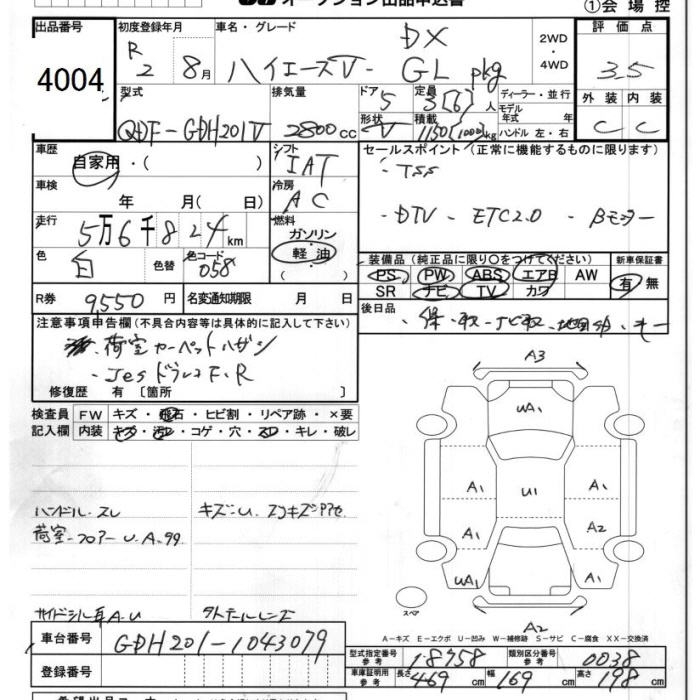 オークション出品申込書
①会場控
出品番号
4004
初度登録年月
R 2 8月
車名・グレード
ハイエースV- DX GL pkg
2WD・4WD
評価点
3.5
外装 内装
C C
型式
QDF-GDH201V
排気量
2800cc
ドア
5
形状
V
定員
3[6]人
積載
1150[1000]kg
ディーラー・並行
モデル年式 年
ハンドル 左・右
車歴
自家用・( )
シフト
IAT
車検
年 月( 日)
冷房
AC
走行
5万6千824km
燃料
ガソリン
軽・油
( )
色
白
色替
色コード
058
R券
9,550円
名変通知期限 月 日
セールスポイント(正常に機能するものに限ります)
・TSS
・DTV - ETC2.0 - Bモニター
装備品(純正品に限り○をつけてください)
PS PW ABS エアB AW
SR ナビ TV カワ
新車保証書
有・無
後日品
・保・取・ナビ取・
注意事項申告欄(不具合内容等は具体的に記入して下さい)
・荷室カーペットハガシ
・ドラレコF.R
修復歴 有〔箇所 〕
検査員記入欄
FW キズ・飛石・ヒビ割・リペア跡・×要
内装 キズ・汚レ・コゲ・穴・スレ・キレ・破レ
ハンドル・スレ
荷室-フロアーU.A.
サイドシル A.U
キズ
A3
UA1
A1 A1
U1
A1 A2
UA1 A1
スペア
A2
A-キズ E-エクボ U-凹み W-補修跡 S-サビ C-腐食 XX-交換済
車台番号
GDH201-1043079
登録番号
型式指定番号 参考
18758
類別区分番号 参考
0038
車庫証明用 参考
長さ 469cm 幅 169cm 高さ 198cm